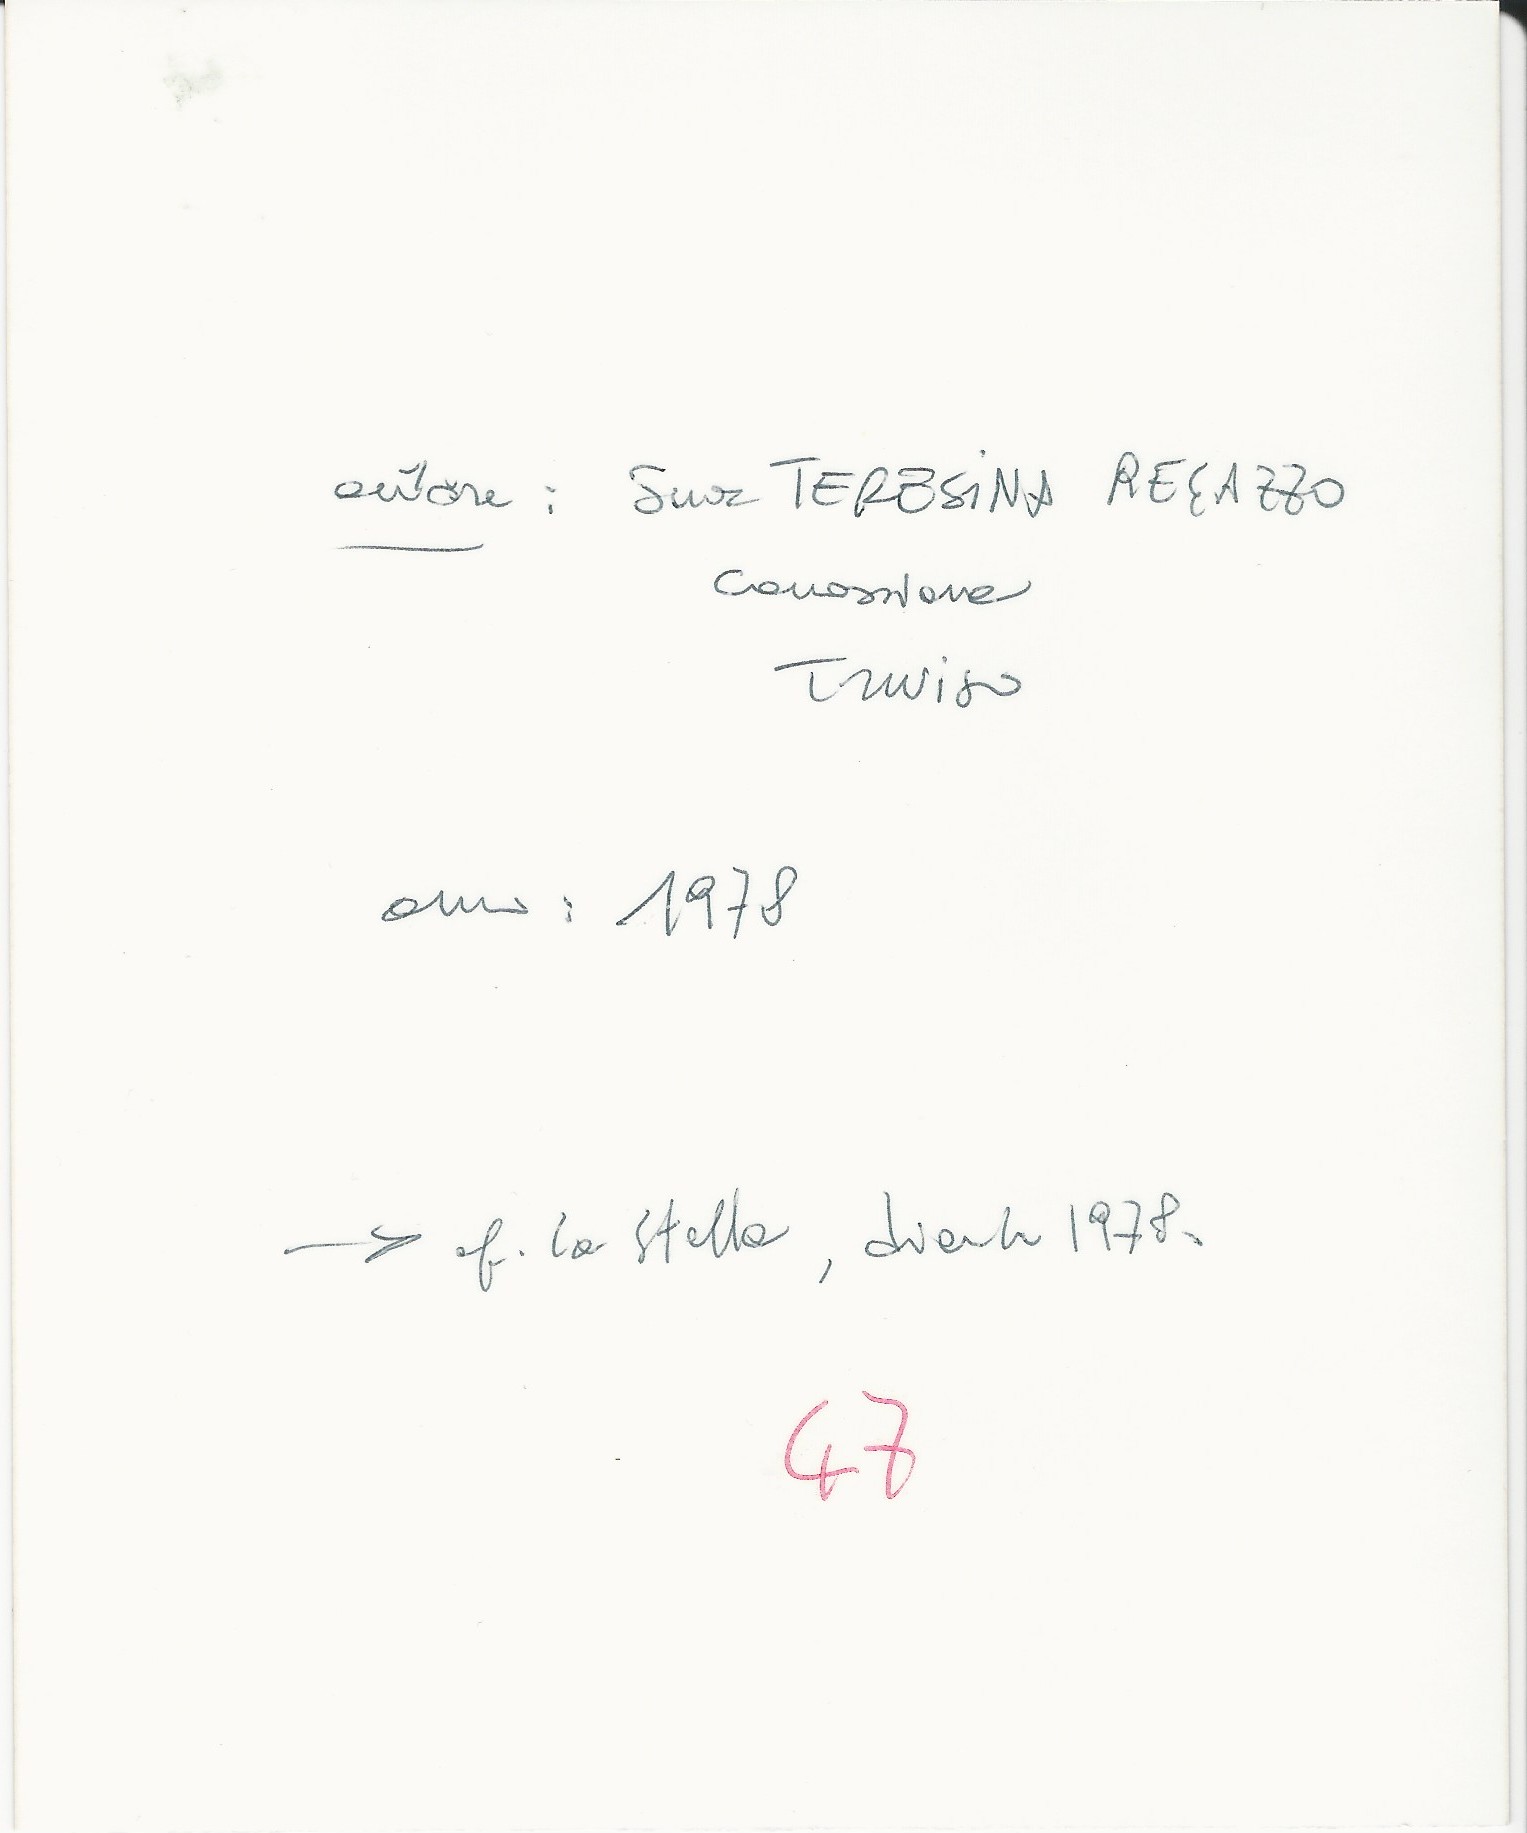 autore : Suor TERESINA REGAZZO
Canossiana
Treviso
anno : 1978
→ cf. La Stella, 1978.
47